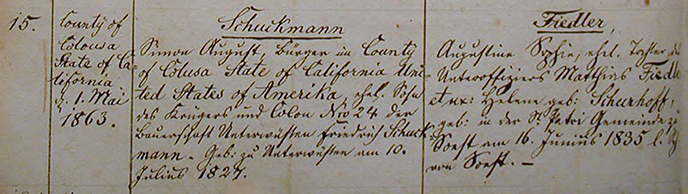 15.
County of
Colousa
State of Ca-
lifornia
d. 1. Mai
1863.
Schuckmann
Simon August, Bürger im County
of Colusa State of California Uni-
ted States of Amerika, ehel. Sohn
des Königers und Colon Nro 24 der
Bauerschaft Unterwüsten Friedrich Schuck-
mann. Geb: zu Unterwüsten am 10.
Julius 1827.
Fiedler,
Augustine Sophie, ehel. Tochter des
Unteroffiziers Matthias Fiedler
et ux: Helene geb: Schurhoff,
geb: in der St Petri Gemeinde zu
Soest am 16. Junius 1835
von Soest. —